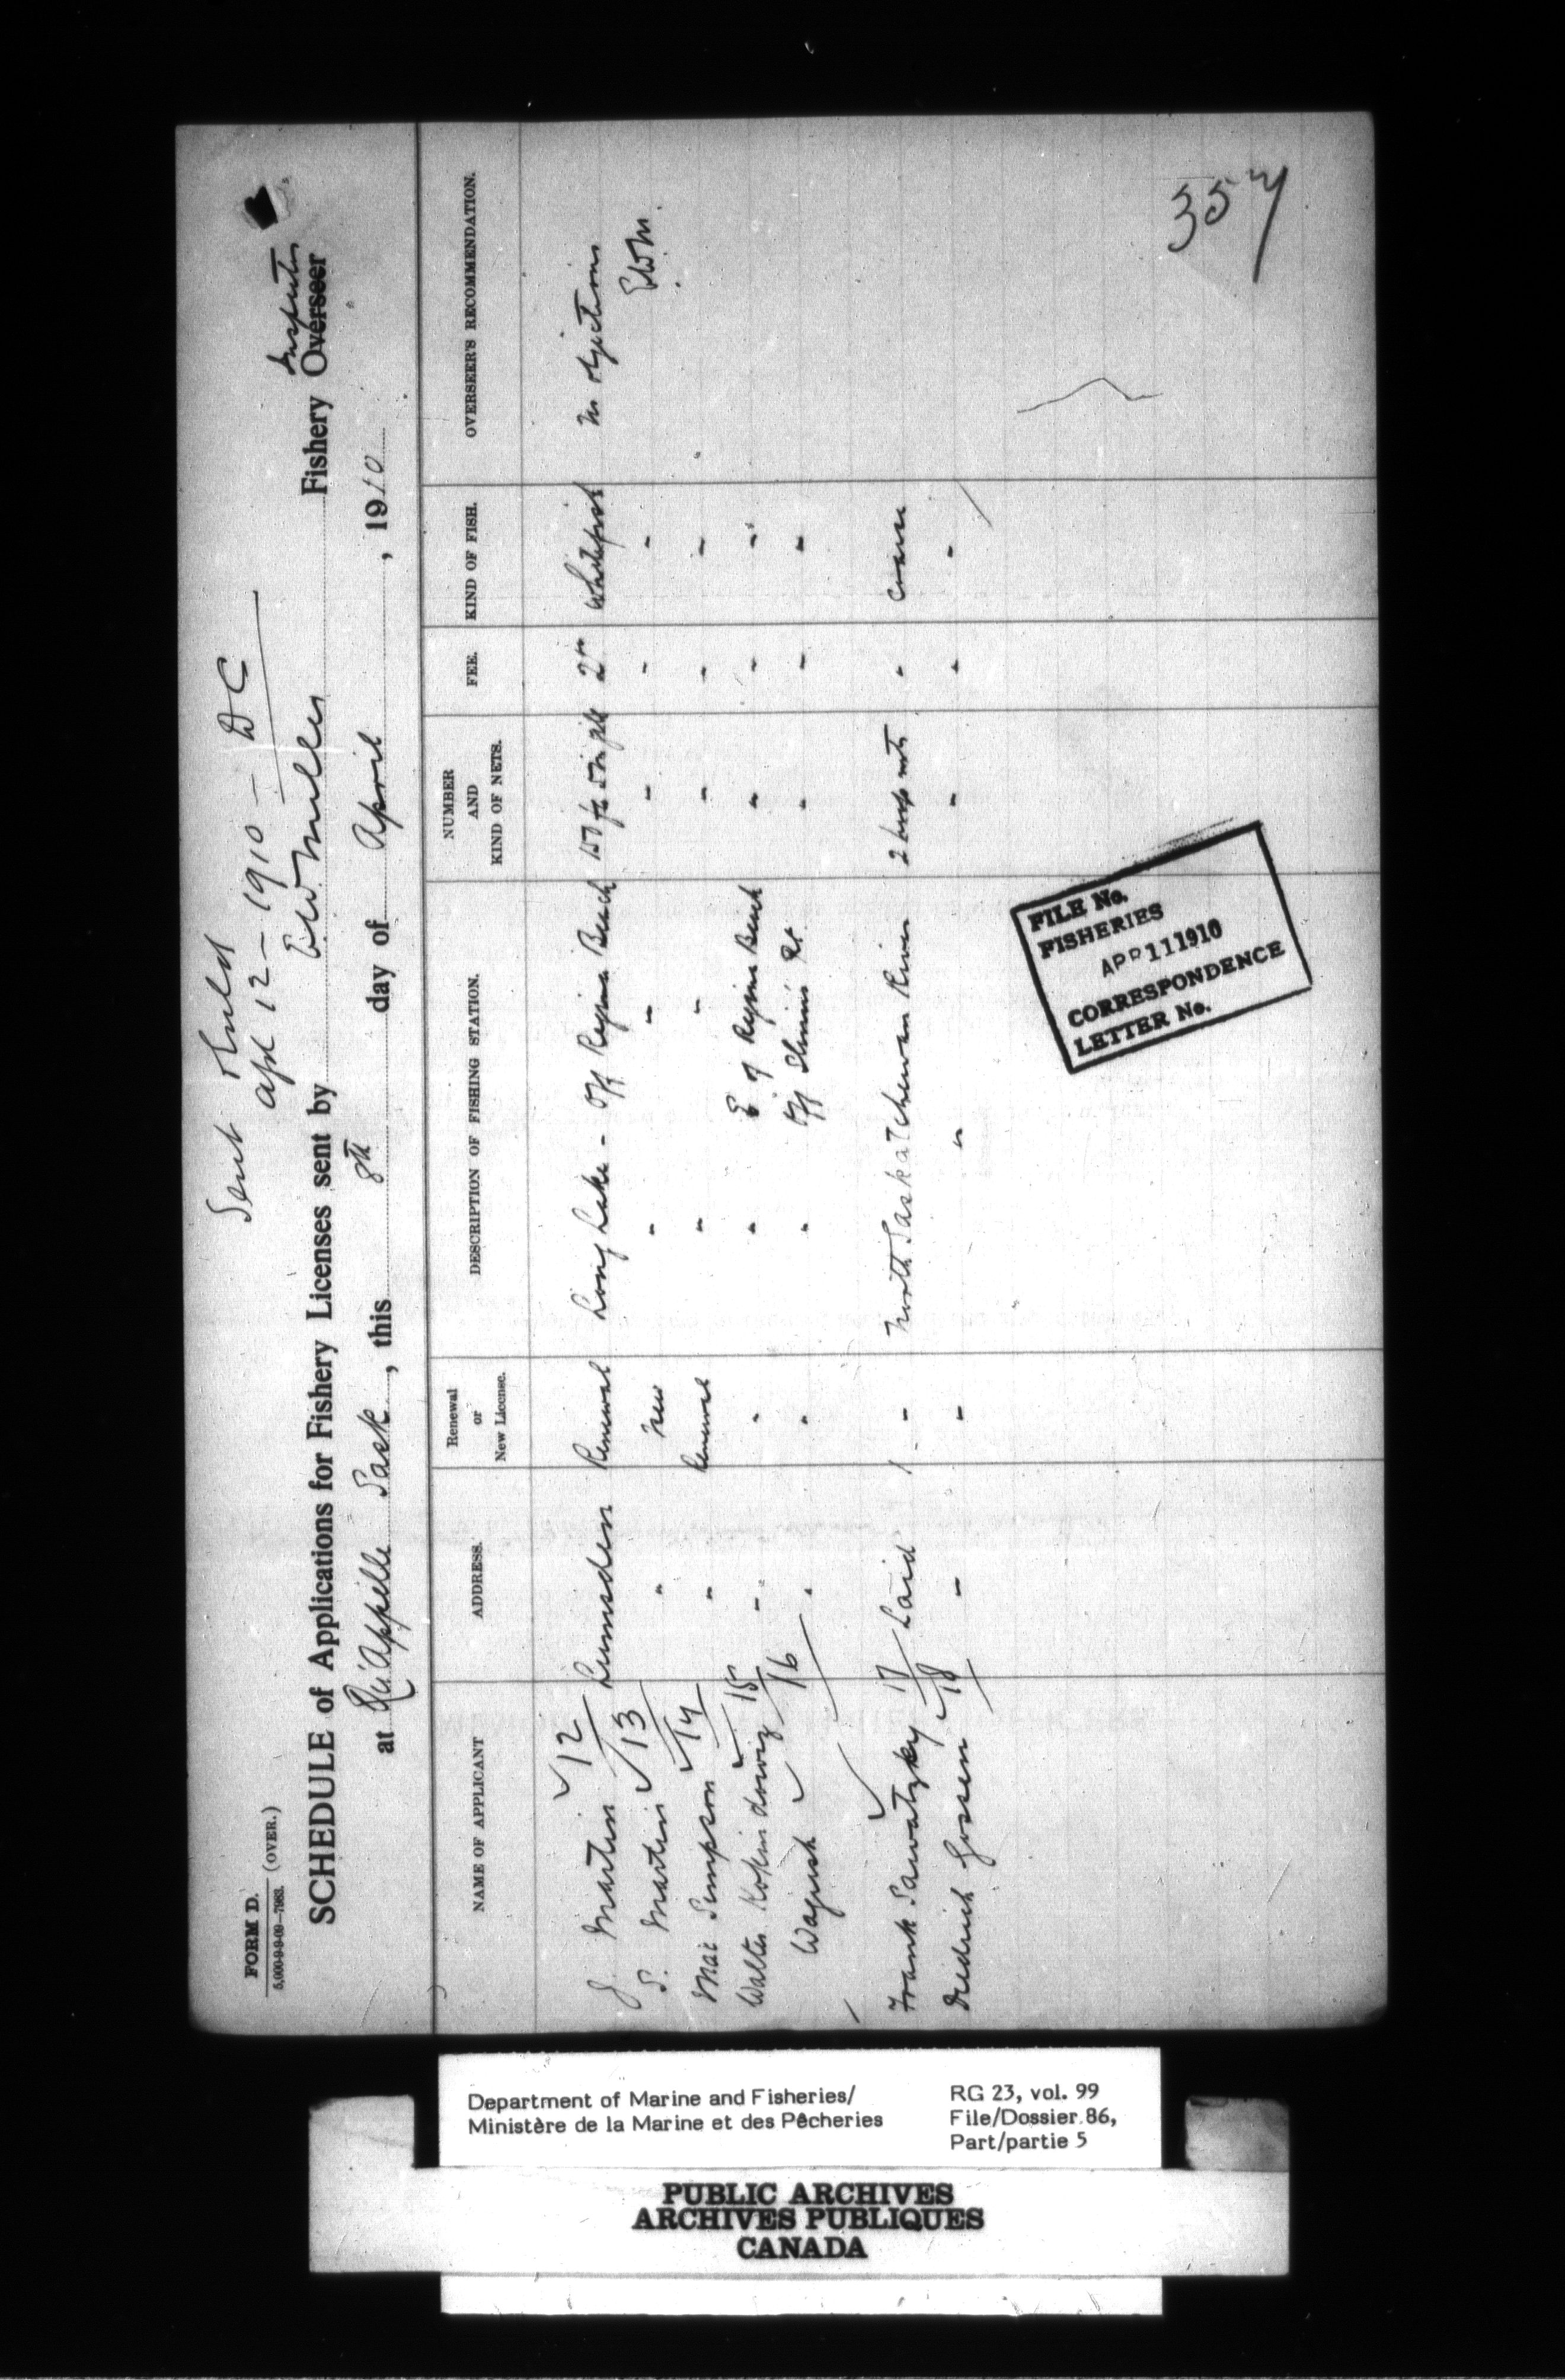 FORM D.
5,000-9-9-09—7983. (OVER.)
Sent
Apl 12 - 1910 - D C
SCHEDULE of Applications for Fishery Licenses sent by EW Miller Fishery Overseer Inspector
at Qu'Appelle Sask, this 8th day of April, 1910
NAME OF APPLICANT ADDRESS. Renewal or New License. DESCRIPTION OF FISHING STATION. NUMBER AND KIND OF NETS. FEE. KIND OF FISH. OVERSEER'S RECOMMENDATION.
J. Martin 12 Lumsden Renewal Long Lake - Off Regina Beach 150 2 Whitefish No objections
S. Martin 13 " New " " " " " EWM.
Mac Simpson 14 " Renewal " " " " "
Walter 15 " " " E of Regina Beach " " "
16 " " " Off " " "
Frank Sawatzky 17 Laird " North Saskatchewan River 2 hoop nets " Coarse
Diedrich Gossen 18 " " " " " "
357
FILE No.
FISHERIES
APR 11 1910
CORRESPONDENCE
LETTER No.
Department of Marine and Fisheries/
Ministère de la Marine et des Pêcheries
RG 23, vol. 99
File/Dossier 86,
Part/partie 5
PUBLIC ARCHIVES
ARCHIVES PUBLIQUES
CANADA